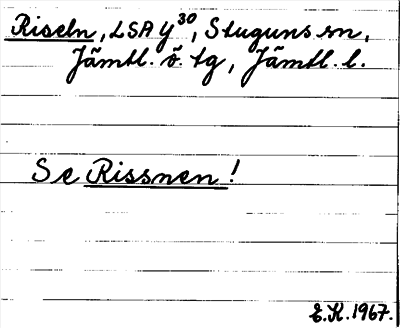 Riseln, LSA y³⁰, Stuguns sn,
Jämtl. ö. tg, Jämtl. l.
Se Rissnen!
E.K. 1967.